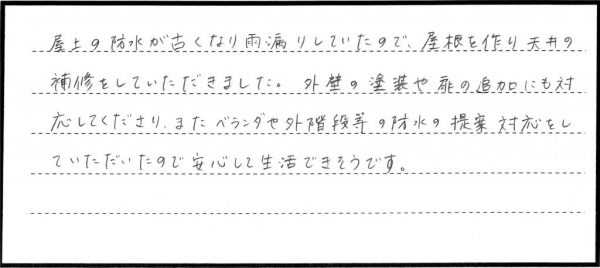 屋上の防水が古くなり雨漏りしていたので、屋根を作り天井の
補修をしていただきました。外壁の塗装や扉の追加にも対
応してくださり、またベランダや外階段等の防水の提案対応をし
ていただいたので安心して生活できそうです。